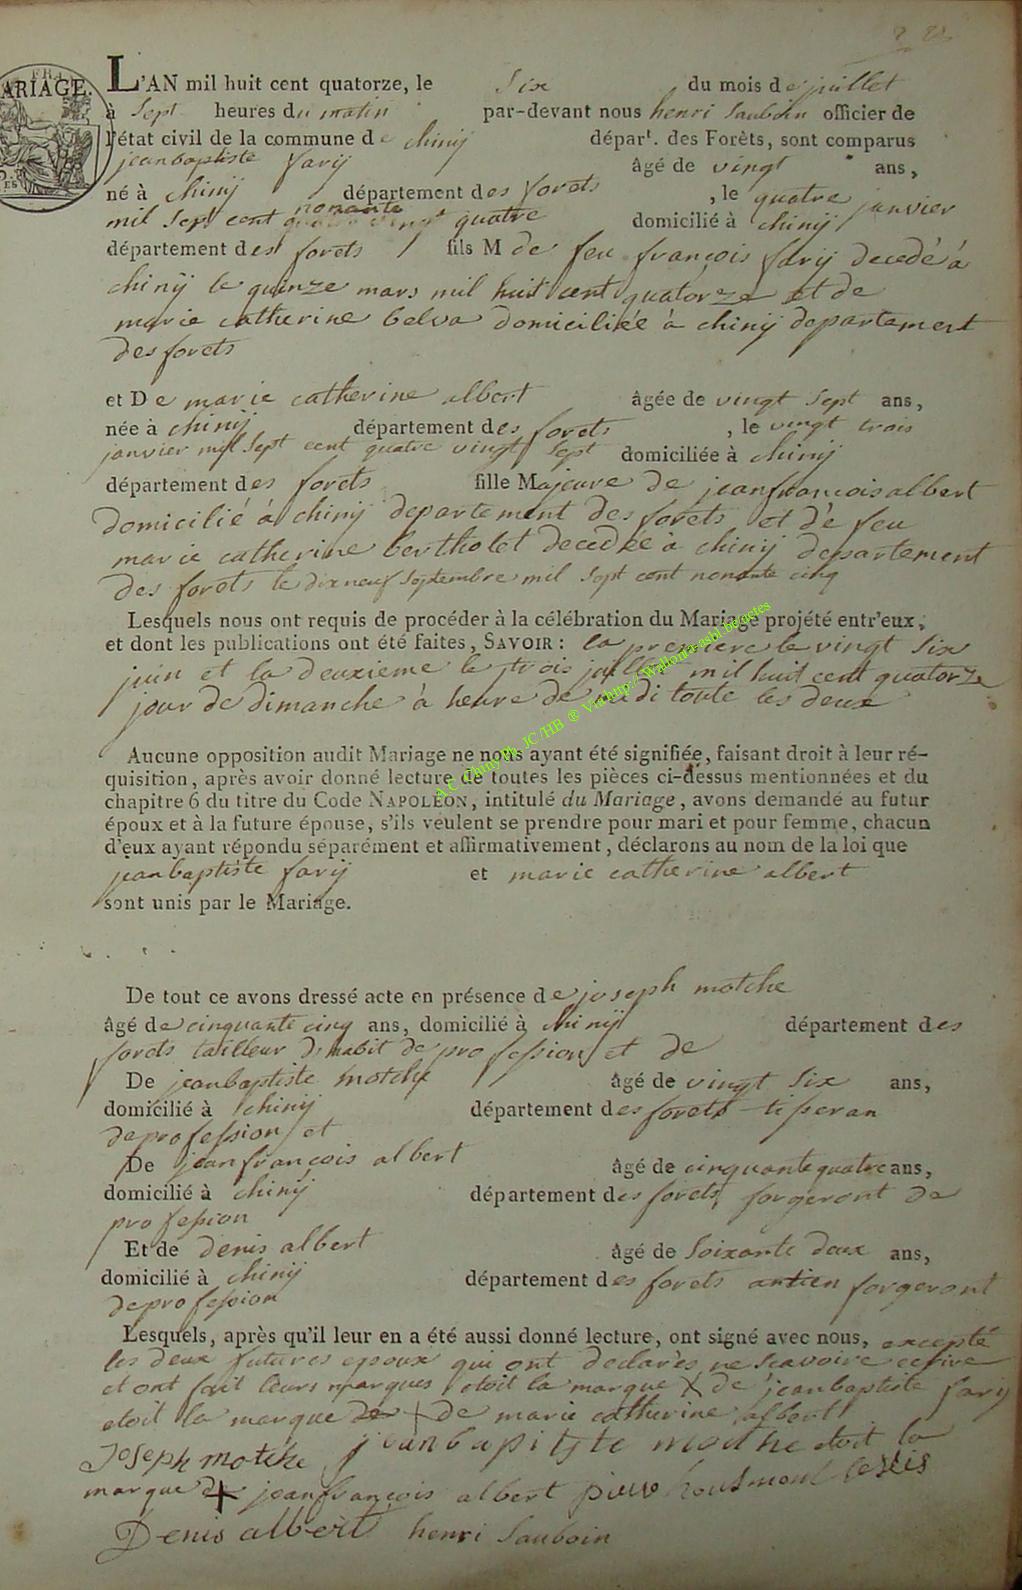 MARIAGE.
L'AN mil huit cent quatorze, le six du mois de juillet
à sept heures du matin par-devant nous henri Sauboin officier de
l'état civil de la commune de chinÿ dépar<sup>t</sup>. des Forêts, sont comparus
jeanbaptiste farÿ âgé de vingt ans,
né à chinÿ département des forets, le quatre janvier
mil sept cent nonante quatre domicilié à chinÿ
département des forets fils M de feu françois farÿ decedé à
chinÿ le quinze mars mil huit cent quatorze et de
marie catherine belva domiciliée à chinÿ departement
des forets
et De marie catherine albert âgée de vingt sept ans,
née à chinÿ département des forets, le vingt trois
janvier mil sept cent quatre vingt sept domiciliée à chinÿ
département des forets fille Majeure de jeanfrancois albert
domicilié à chinÿ departement des forets et de feu
marie catherine bertholet decedée à chinÿ departement
des forets le dix neuf septembre mil sept cent nonante cinq
Lesquels nous ont requis de procéder à la célébration du Mariage projété entr'eux,
et dont les publications ont été faites, SAVOIR : la premiere le vingt six
juin et la deuxieme le trois juillet mil huit cent quatorze
jour de dimanche à heure de midi toute les deux
Aucune opposition audit Mariage ne nous ayant été signifiée, faisant droit à leur ré-
quisition, après avoir donné lecture de toutes les pièces ci-dessus mentionnées et du
chapitre 6 du titre du Code NAPOLÉON, intitulé du Mariage, avons demandé au futur
époux et à la future épouse, s'ils veulent se prendre pour mari et pour femme, chacun
d'eux ayant répondu séparément et affirmativement, déclarons au nom de la loi que
jeanbaptiste farÿ et marie catherine albert
sont unis par le Mariage.
De tout ce avons dressé acte en présence de joseph motche
âgé de cinquante cinq ans, domicilié à chinÿ département des
forets tailleur d'habit de profession et de
De jeanbaptiste motche âgé de vingt six ans,
domicilié à chinÿ département des forets tiseran
de profession et
De jeanfrançois albert âgé de cinquante quatre ans,
domicilié à chinÿ département des forets, forgeront de
profession
Et de denis albert âgé de soixante deux ans,
domicilié à chinÿ département des forets antien forgeront
de profession
Lesquels, après qu'il leur en a été aussi donné lecture, ont signé avec nous, excepté
les deux futures epoux qui ont declarés ne scavoire ecrire
et ont fait leurs marques etoit la marque X de jeanbaptiste farÿ
etoit la marque de + de marie catherine albert
Joseph motche jeanbapitste motche etoit la
marque de + jeanfrançois albert
Denis albert henri Sauboin
A.C. Chiny Ph JC/HB ® Via http://Wallonia-asbl.be/actes